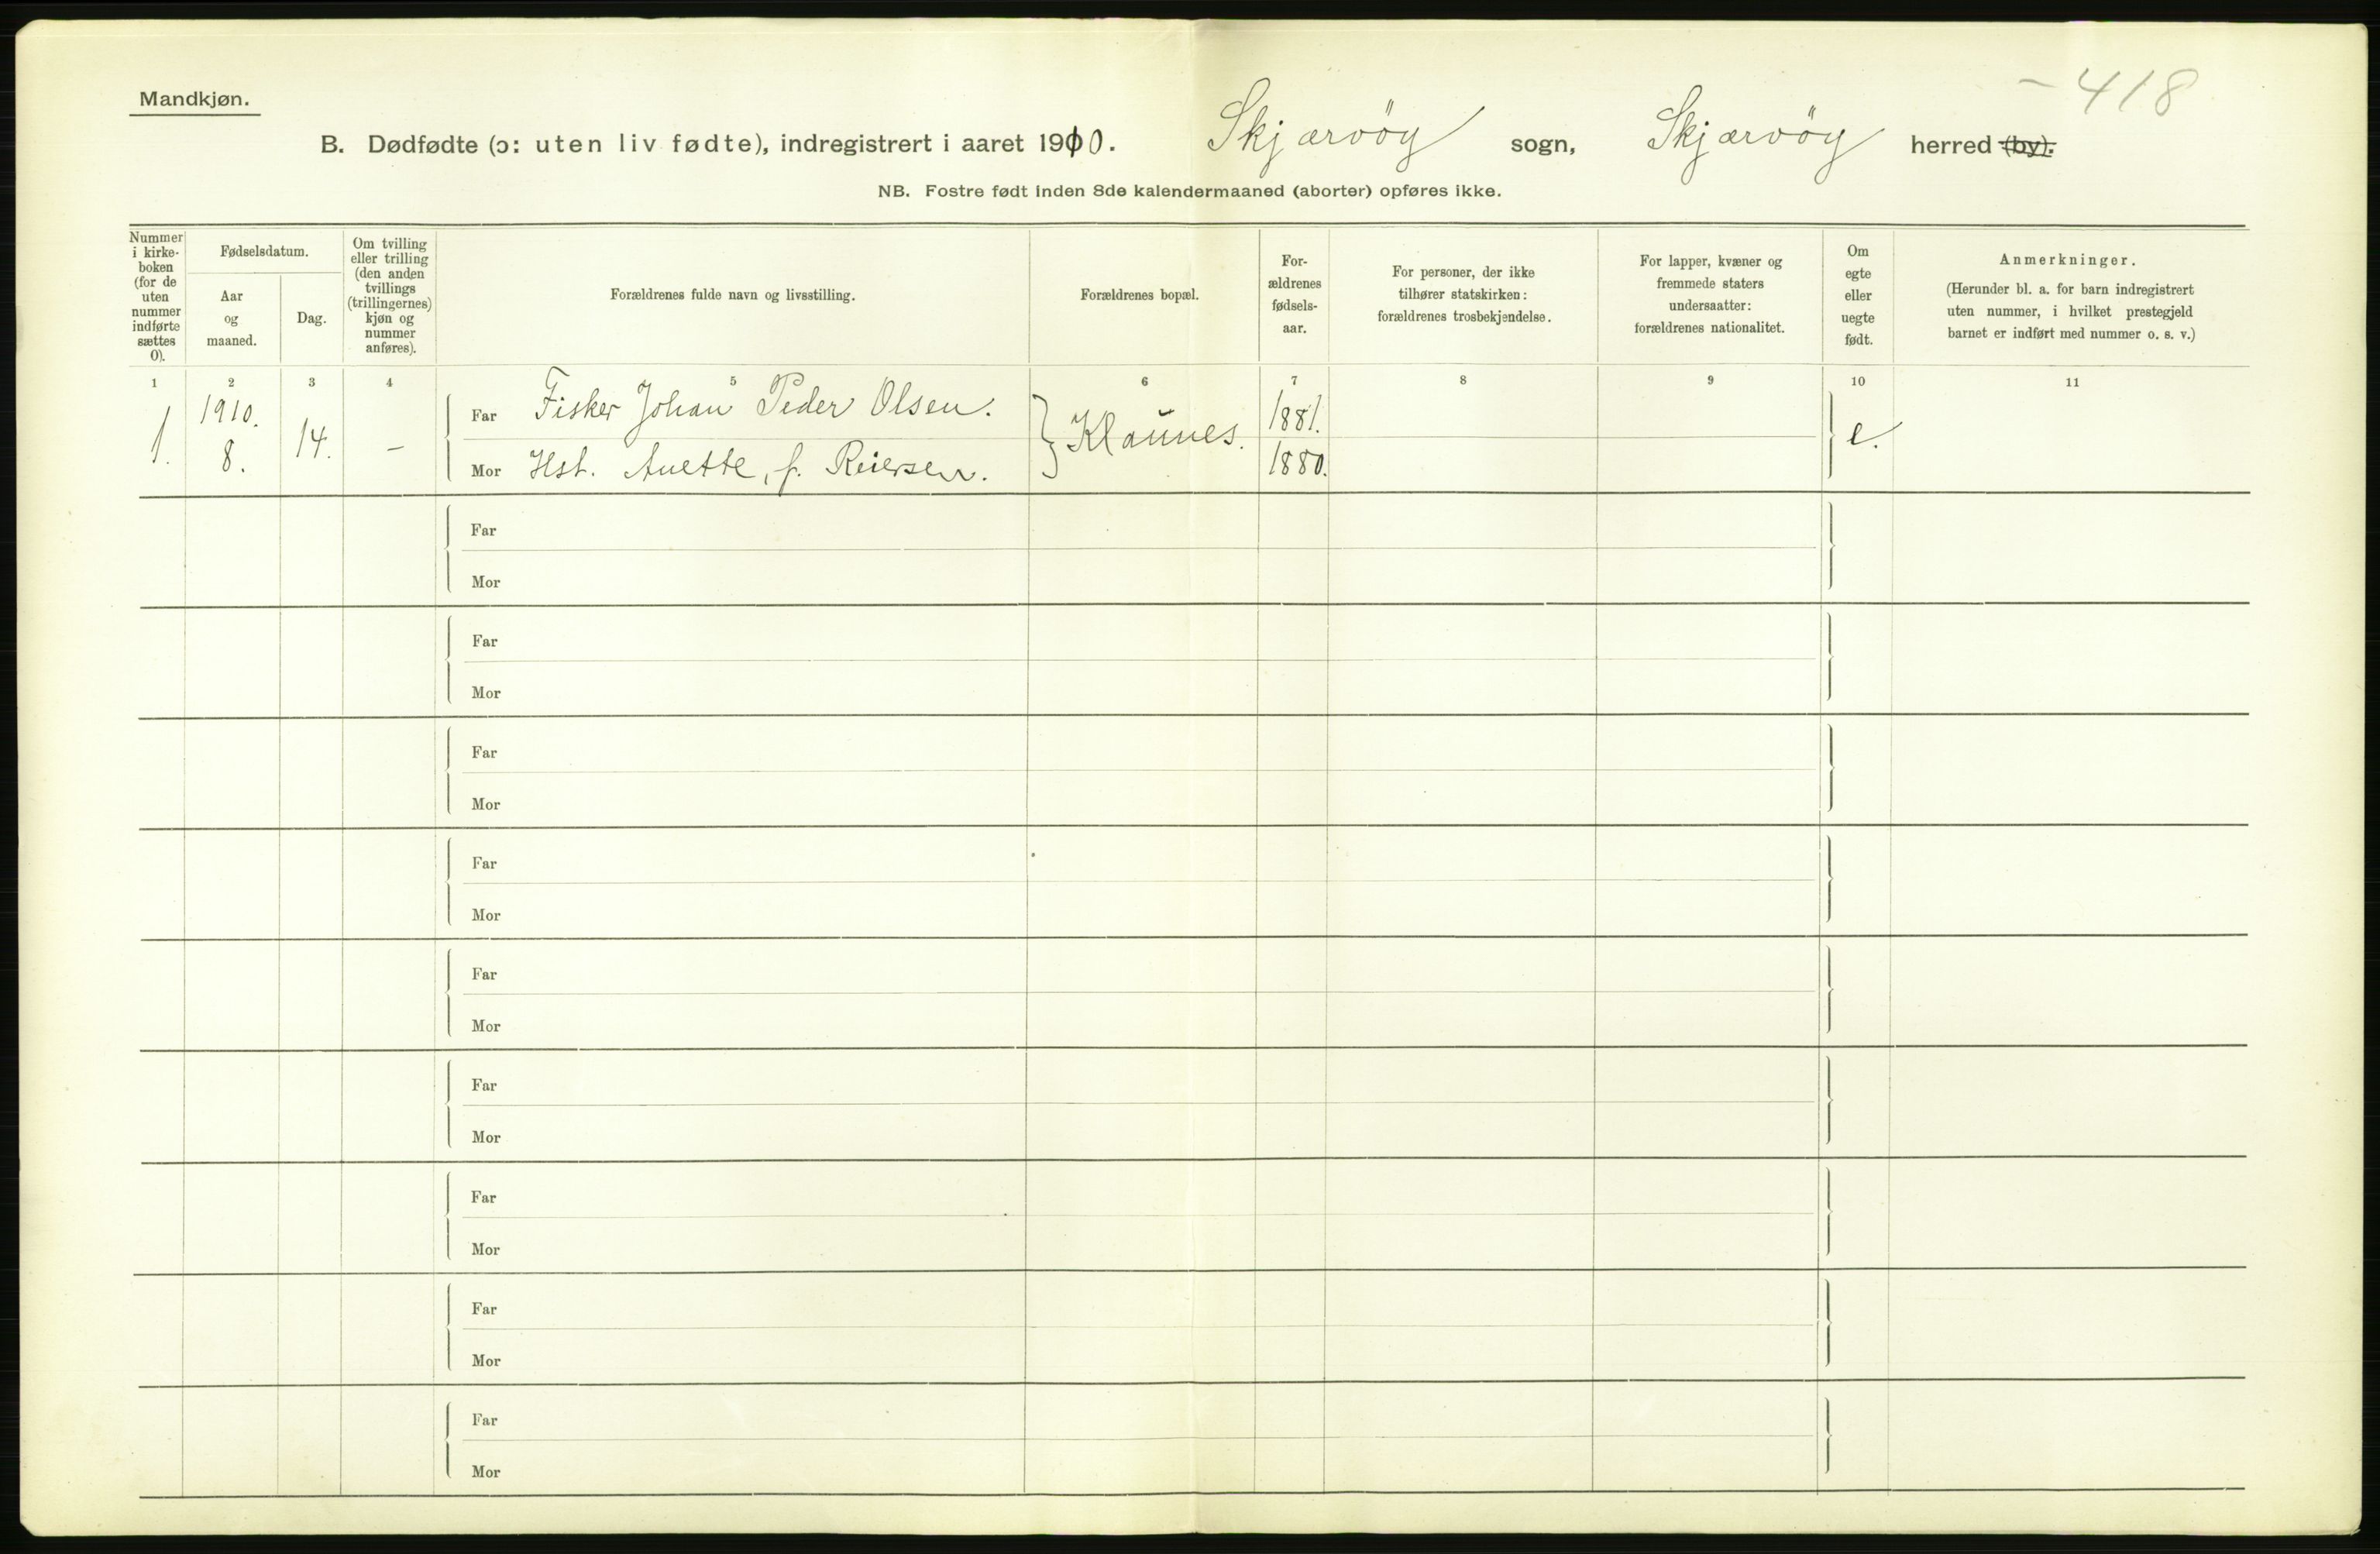 Mandkjøn.
-418
B. Dødfødte (ɔ: uten liv fødte), indregistrert i aaret 1910. Skjærvöy sogn, Skjærvöy herred (by).
NB. Fostre født inden 8de kalendermaaned (aborter) opføres ikke.
Nummer
i kirke-
boken
(for de
uten
nummer
indførte
sættes
0).
Fødselsdatum.
Aar
og
maaned.
Dag.
Om tvilling
eller trilling
(den anden
tvillings
(trillingernes)
kjøn og
nummer
anføres).
Forældrenes fulde navn og livsstilling.
Forældrenes bopæl.
For-
ældrenes
fødsels-
aar.
For personer, der ikke
tilhører statskirken:
forældrenes trosbekjendelse.
For lapper, kvæner og
fremmede staters
undersaatter:
forældrenes nationalitet.
Om
egte
eller
uegte
født.
Anmerkninger.
(Herunder bl. a. for barn indregistrert
uten nummer, i hvilket prestegjeld
barnet er indført med nummer o. s. v.)
1 2 3 4 5 6 7 8 9 10 11
1. 1910. 8. 14. –
Far Fisker Johan Peder Olsen. Klaunes. 1881. e.
Mor Hst. Anette, f. Reiersen. 1880.
Far
Mor
Far
Mor
Far
Mor
Far
Mor
Far
Mor
Far
Mor
Far
Mor
Far
Mor
Far
Mor